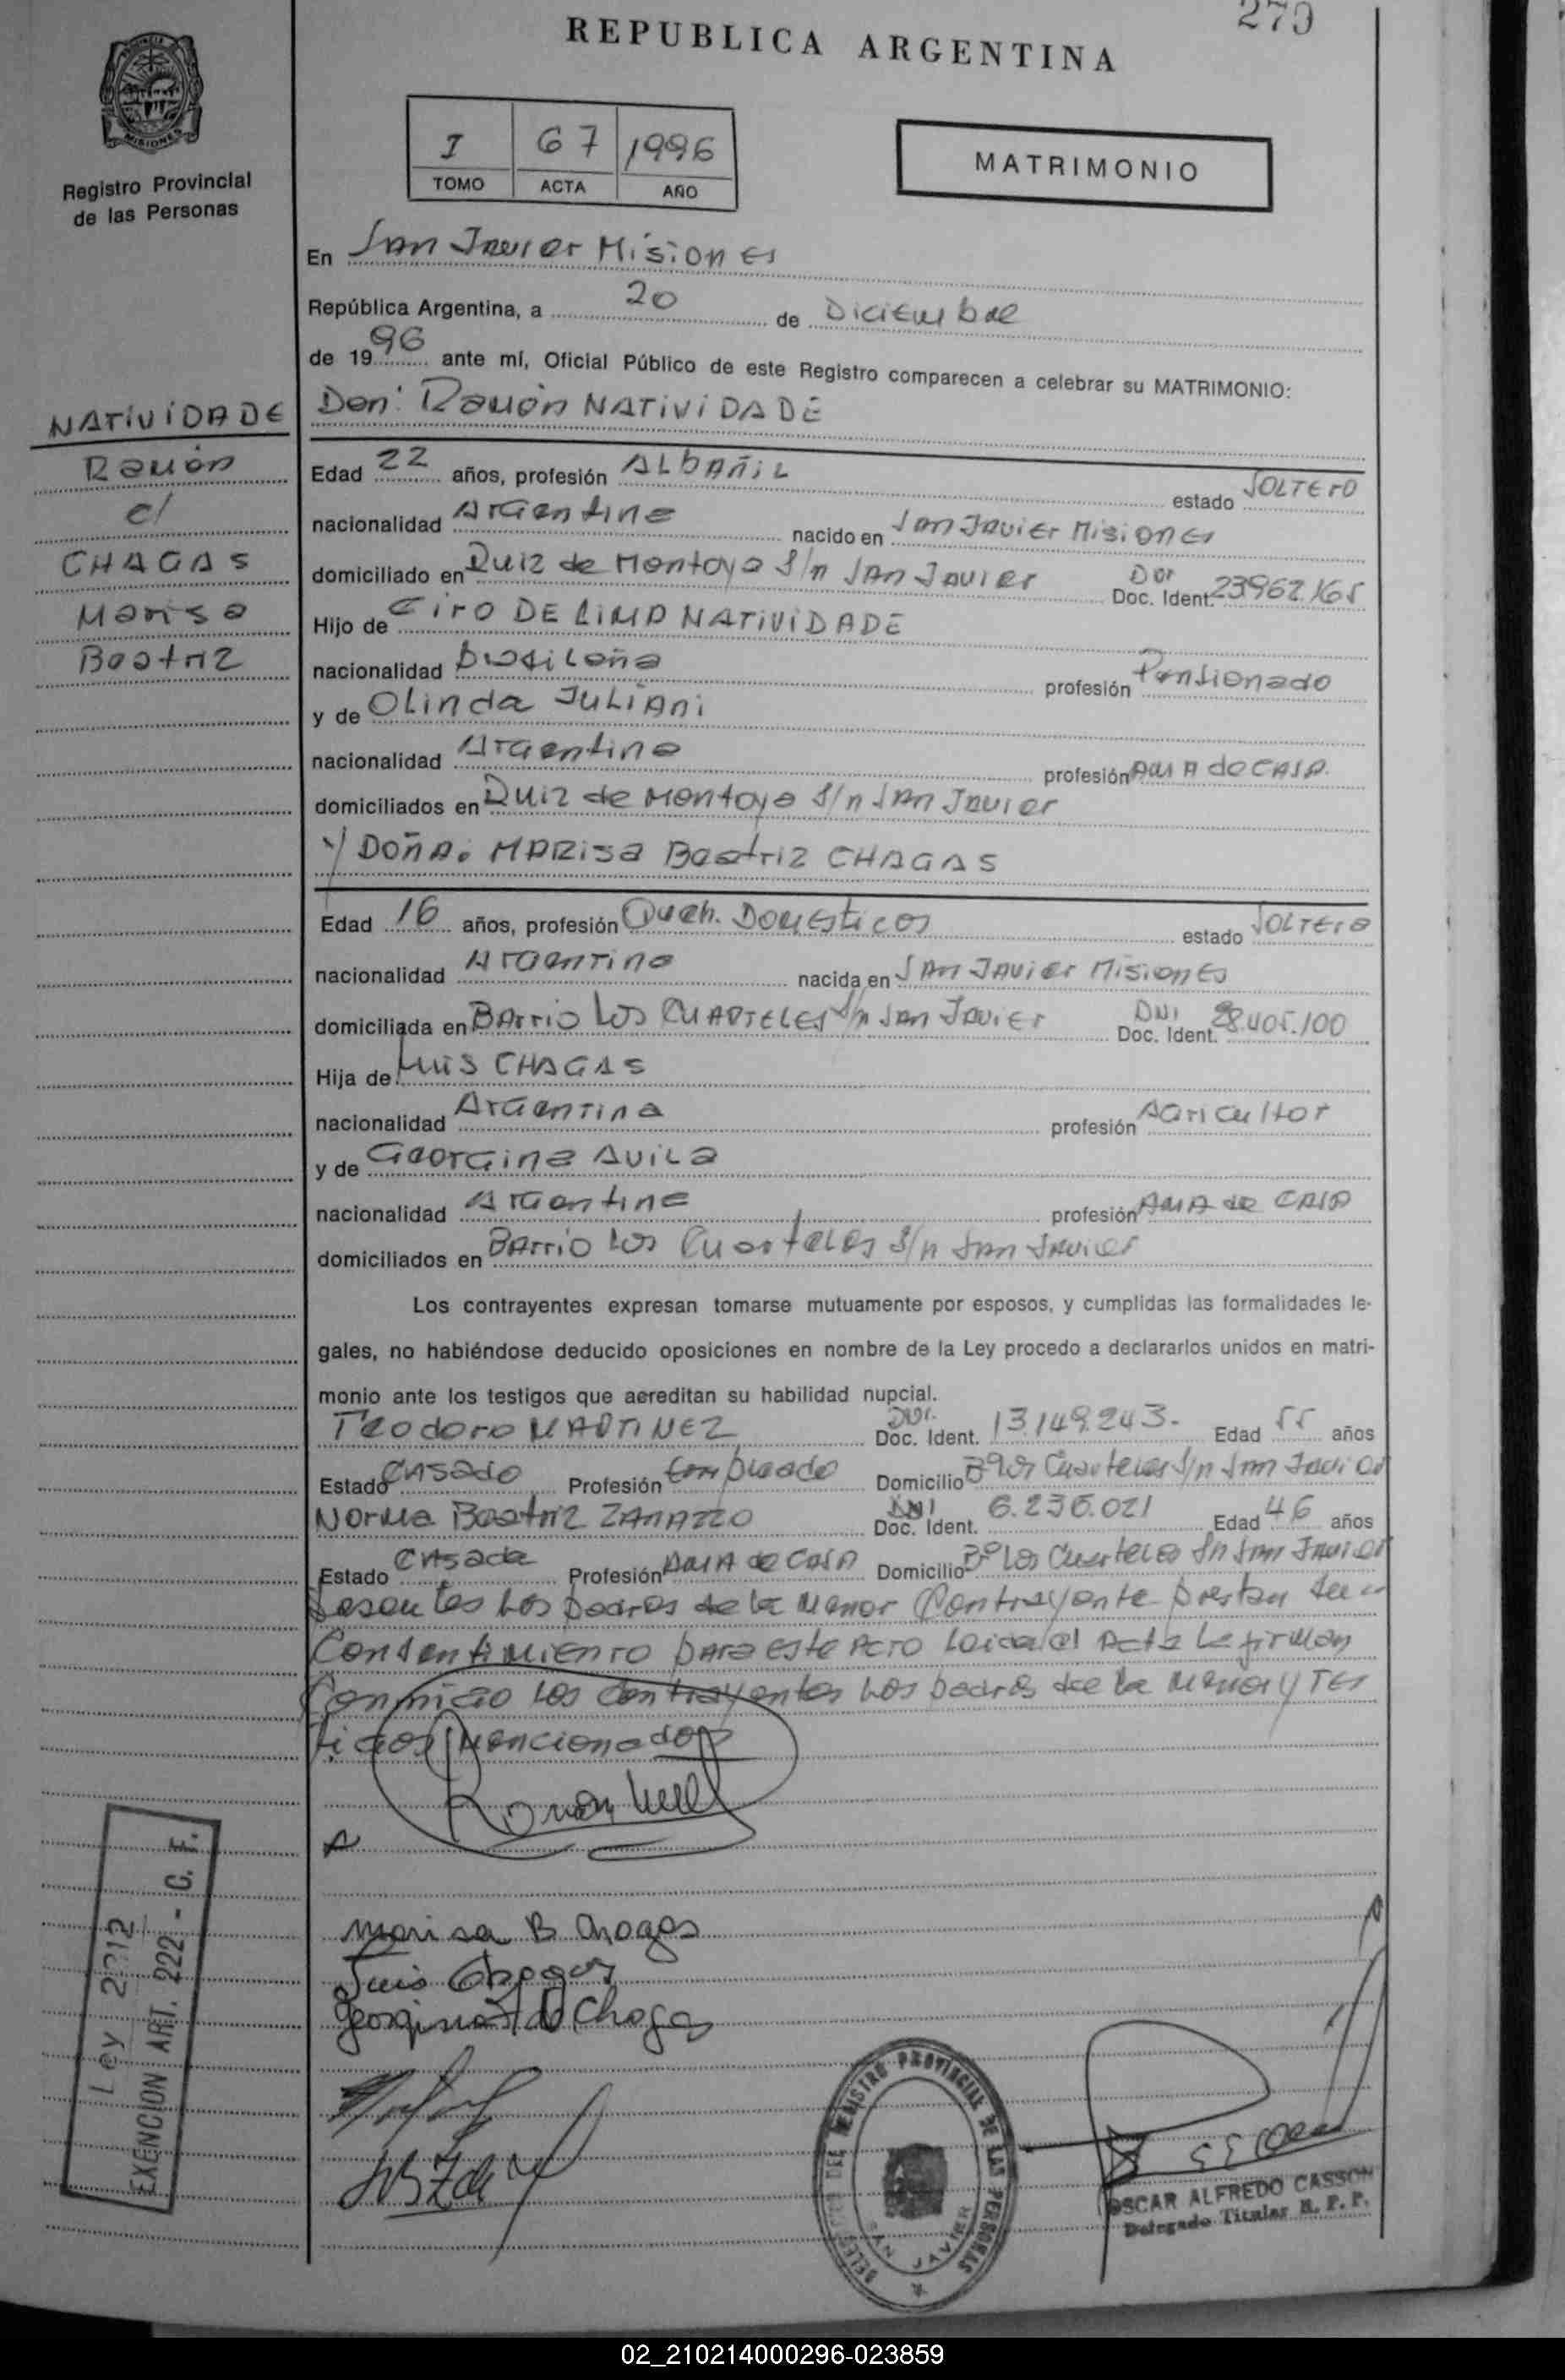 279
REPUBLICA ARGENTINA
MISIONES
Registro Provincial
de las Personas
I 67 1996
TOMO ACTA AÑO
MATRIMONIO
En San Javier Misiones
República Argentina, a 20 de Diciembre
de 1996 ante mí, Oficial Público de este Registro comparecen a celebrar su MATRIMONIO:
NATIVIDADE
Ramón
c/
CHAGAS
Marisa
Beatriz
Don: Ramón NATIVIDADE
Edad 22 años, profesión ALbAñiL estado SOLTERO
nacionalidad Argentina nacido en San Javier Misiones
domiciliado en Ruiz de Montoya S/n San Javier DNI Doc. Ident. 23962.165
Hijo de Ciro DE LIMA NATIVIDADE
nacionalidad brasileña profesión Pensionado
y de Olinda JULIAni
nacionalidad Argentina profesión AMA de CASA.
domiciliados en Ruiz de Montoya S/n San Javier
y DOÑA: MARISA Beatriz CHAGAS
Edad 16 años, profesión Queh. Domesticos estado SOLTERA
nacionalidad Argentina nacida en San Javier Misiones
domiciliada en Barrio Los CUARTELES S/n San Javier DNI Doc. Ident. 28.405.100
Hija de Luis CHAGAS
nacionalidad Argentina profesión Agricultor
y de Georgina Avila
nacionalidad Argentina profesión AMA de CASA
domiciliados en Barrio Los Cuarteles S/n San Javier
Los contrayentes expresan tomarse mutuamente por esposos, y cumplidas las formalidades le-
gales, no habiéndose deducido oposiciones en nombre de la Ley procedo a declararlos unidos en matri-
monio ante los testigos que acreditan su habilidad nupcial.
Teodoro MARTINEZ DNI. Doc. Ident. 13.149.243. Edad 55 años
Estado Casado Profesión Empleado Domicilio Bº Los Cuarteles S/n San Javier
Norma Beatriz ZANAZZO DNI Doc. Ident. 6.236.021 Edad 46 años
Estado Casada Profesión AMA de CASA Domicilio Bº Los Cuarteles Sn San Javier
Los padres de la Menor Contrayente prestan su
Consentimiento para este Acto Leida el Acta La firman
Conmigo Los Contrayentes Los padres de la Menor y Tes
tigos Mencionados
Marisa B Chagas
Luis Chagas
Georgina A de Chagas
EXENCION ART. 222 - C. F.
SAN JAVIER
REGISTRO PROVINCIAL DE LAS PERSONAS
OSCAR ALFREDO CASSON
Delegado Titular R. P. P.
02_210214000296-023859